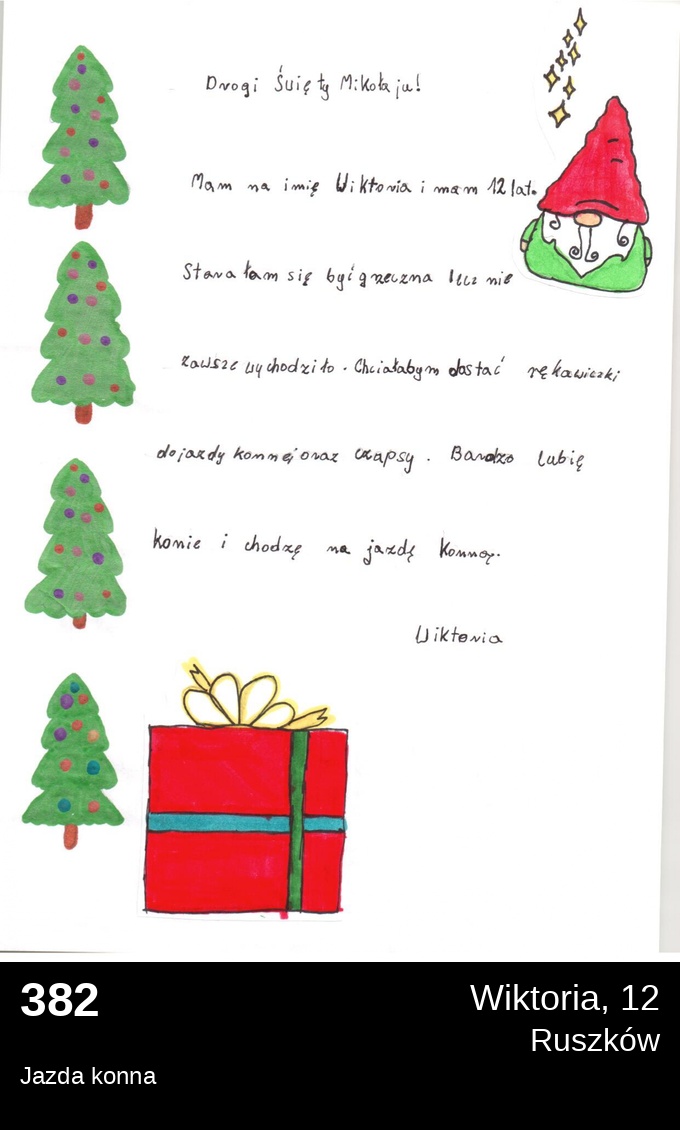 Drogi Święty Mikołaju!
Mam na imię Wiktoria i mam 12 lat.
Starałam się być grzeczna lecz nie
zawsze wychodziło. Chciałabym dostać rękawiczki
do jazdy konnej oraz czapsy. Bardzo lubię
konie i chodzę na jazdę konną.
Wiktoria
382
Wiktoria, 12
Ruszków
Jazda konna